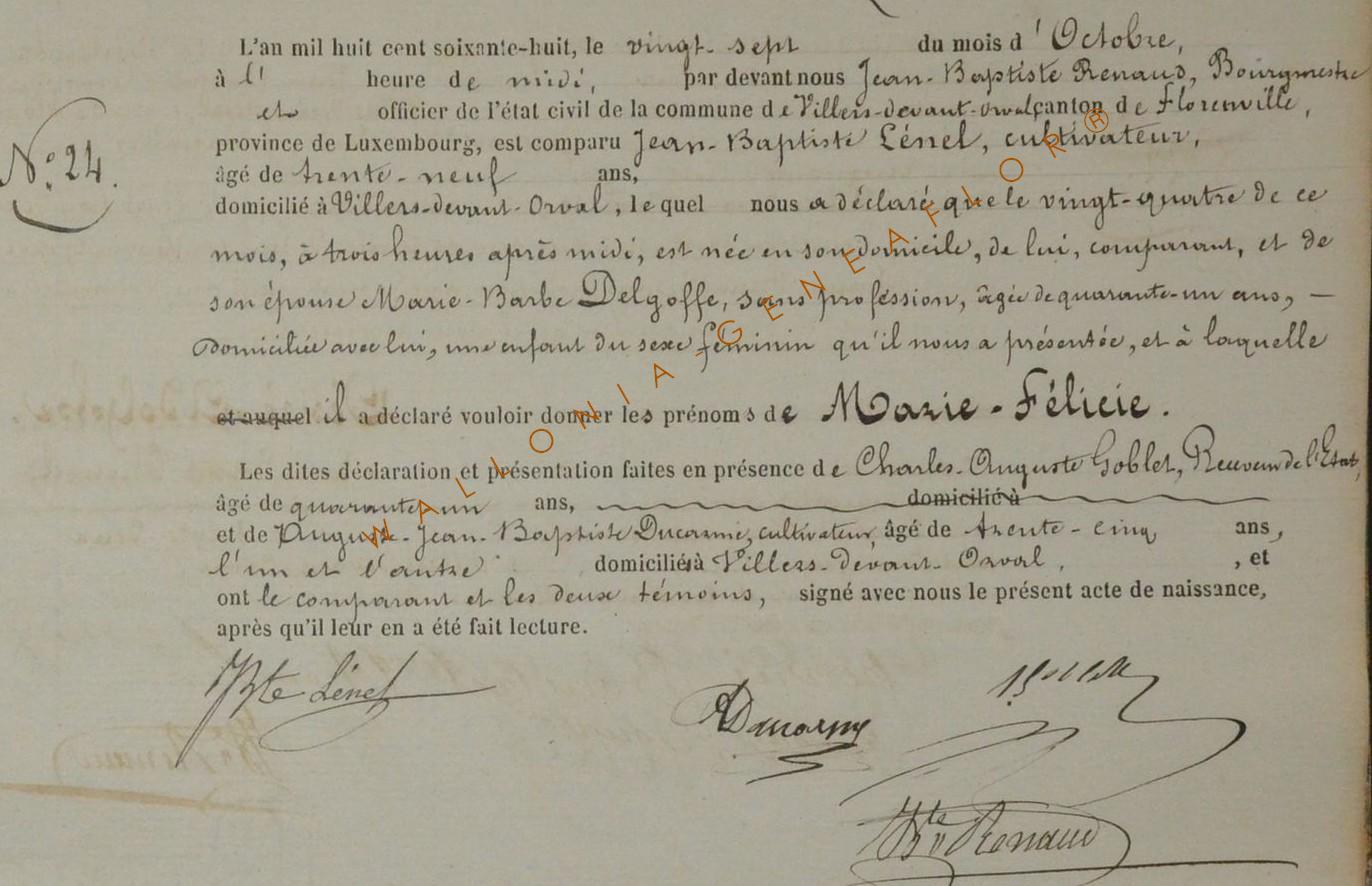 L'an mil huit cent soixante-huit, le vingt-sept du mois d'Octobre,
à l' heure de midi, par devant nous Jean-Baptiste Renaud, Bourgmestre
et officier de l'état civil de la commune de Villers-devant-orval, canton de Florenville,
province de Luxembourg, est comparu Jean-Baptiste Lénel, cultivateur,
Nº 24.
âgé de trente-neuf ans,
domicilié à Villers-devant-Orval, le quel nous a déclaré que le vingt-quatre de ce
mois, à trois heures après midi, est née en son domicile, de lui, comparant, et de
son épouse Marie-Barbe Delgoffe, sans profession, âgée de quarante-un ans, —
domiciliée avec lui, une enfant du sexe féminin qu'il nous a présentée, et à laquelle
et auquel il a déclaré vouloir donner les prénoms de Marie-Félicie.
Les dites déclaration et présentation faites en présence de Charles-Auguste Goblet, Receveur de l'Etat,
âgé de quarante-un ans, domicilié à
et de Auguste-Jean-Baptiste Ducarme, cultivateur, âgé de trente-cinq ans,
l'un et l'autre domiciliés à Villers-devant-Orval, , et
ont le comparant et les deux témoins, signé avec nous le présent acte de naissance,
après qu'il leur en a été fait lecture.
JBte Lénel
ADucarme
JBte Renaud
WALLONIA-GENEAFLOR®